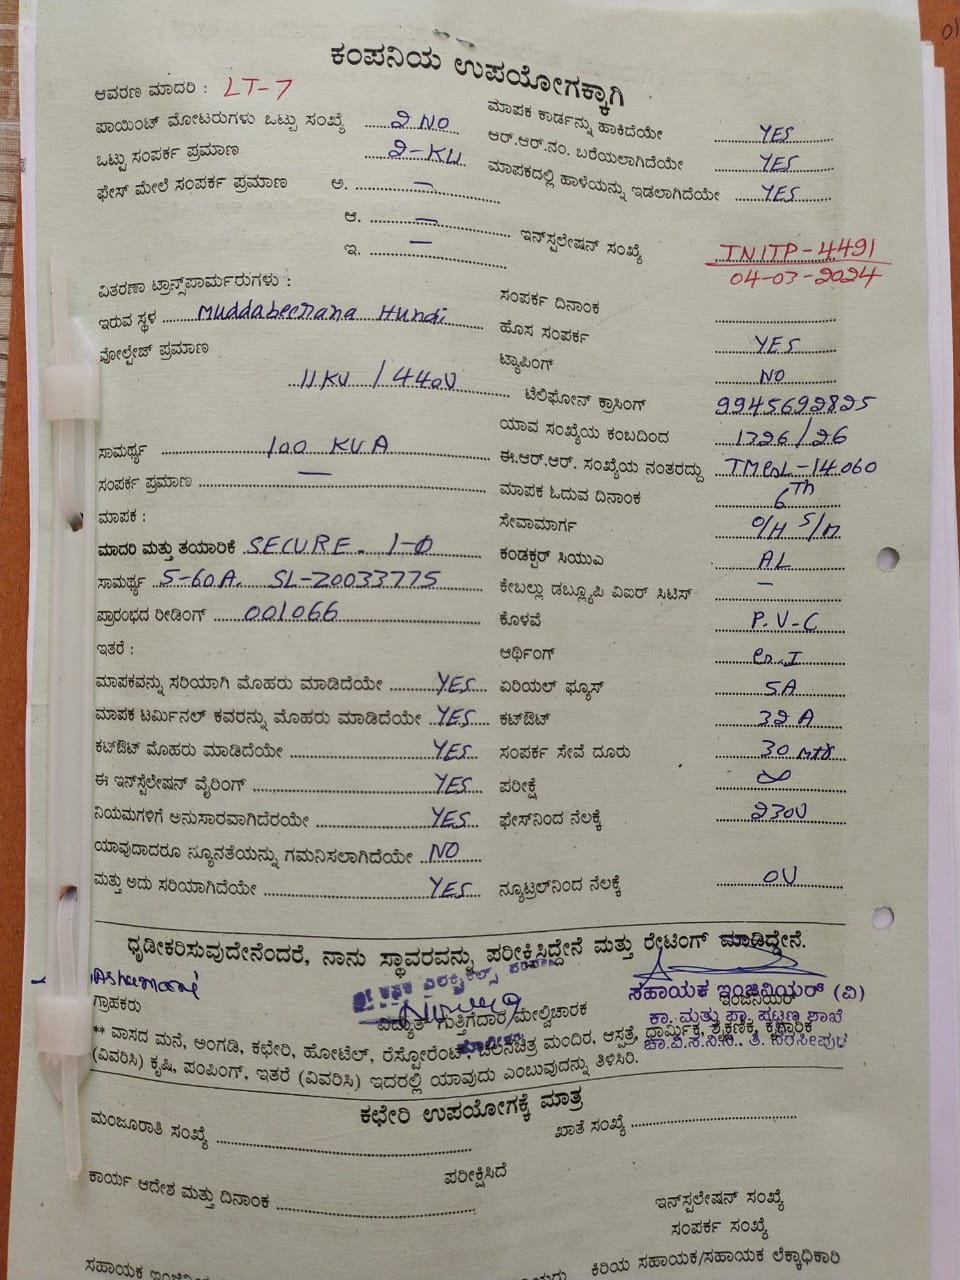 ಕಂಪನಿಯ ಉಪಯೋಗಕ್ಕಾಗಿ
ಆವರಣ ಮಾದರಿ : LT-7
ಪಾಯಿಂಟ್ ಮೋಟರುಗಳು ಒಟ್ಟು ಸಂಖ್ಯೆ 2 NO
ಒಟ್ಟು ಸಂಪರ್ಕ ಪ್ರಮಾಣ 2-KW
ಫೇಸ್ ಮೇಲೆ ಸಂಪರ್ಕ ಪ್ರಮಾಣ ಅ. —
ಆ. —
ಇ. —
ಮಾಪಕ ಕಾರ್ಡನ್ನು ಹಾಕಿದೆಯೇ YES
ಆರ್.ಆರ್.ನಂ. ಬರೆಯಲಾಗಿದೆಯೇ YES
ಮಾಪಕದಲ್ಲಿ ಹಾಳೆಯನ್ನು ಇಡಲಾಗಿದೆಯೇ YES
ಇನ್‌ಸ್ಟಲೇಷನ್ ಸಂಖ್ಯೆ TNITP-4491
04-03-2024
ವಿತರಣಾ ಟ್ರಾನ್ಸ್‌ಫಾರ್ಮರುಗಳು :
ಇರುವ ಸ್ಥಳ Muddabeerana Hundi
ವೋಲ್ಟೇಜ್ ಪ್ರಮಾಣ
11KV / 440V
ಸಾಮರ್ಥ್ಯ 100 KVA
ಸಂಪರ್ಕ ಪ್ರಮಾಣ —
ಮಾಪಕ :
ಮಾದರಿ ಮತ್ತು ತಯಾರಿಕೆ SECURE. 1-Φ
ಸಾಮರ್ಥ್ಯ 5-60A. SL-20033775
ಪ್ರಾರಂಭದ ರೀಡಿಂಗ್ 001066
ಇತರೆ :
ಮಾಪಕವನ್ನು ಸರಿಯಾಗಿ ಮೊಹರು ಮಾಡಿದೆಯೇ YES
ಮಾಪಕ ಟರ್ಮಿನಲ್ ಕವರನ್ನು ಮೊಹರು ಮಾಡಿದೆಯೇ YES
ಕಟ್‌ಔಟ್ ಮೊಹರು ಮಾಡಿದೆಯೇ YES
ಈ ಇನ್‌ಸ್ಟೆಲೇಷನ್ ವೈರಿಂಗ್ YES
ನಿಯಮಗಳಿಗೆ ಅನುಸಾರವಾಗಿದೆರಯೇ YES
ಯಾವುದಾದರೂ ನ್ಯೂನತೆಯನ್ನು ಗಮನಿಸಲಾಗಿದೆಯೇ NO
ಮತ್ತು ಅದು ಸರಿಯಾಗಿದೆಯೇ YES
ಸಂಪರ್ಕ ದಿನಾಂಕ
ಹೊಸ ಸಂಪರ್ಕ YES
ಟ್ಯಾಪಿಂಗ್ NO
ಟೆಲಿಫೋನ್ ಕ್ರಾಸಿಂಗ್ 9945692825
ಯಾವ ಸಂಖ್ಯೆಯ ಕಂಬದಿಂದ 1326/26
ಈ.ಆರ್.ಆರ್. ಸಂಖ್ಯೆಯ ನಂತರದ್ದು -14060
ಮಾಪಕ ಓದುವ ದಿನಾಂಕ 6Th
ಸೇವಾಮಾರ್ಗ O/H S/M
ಕಂಡಕ್ಟರ್ ಸಿಯುಎ AL
ಕೇಬಲ್ಲು ಡಬ್ಲ್ಯೂಪಿ ವಿಐರ್ ಸಿಟಿಸ್ —
ಕೊಳವೆ P.V-C
ಆರ್ಥಿಂಗ್
ಏರಿಯಲ್ ಫ್ಯೂಸ್ 5A
ಕಟ್‌ಔಟ್ 32A
ಸಂಪರ್ಕ ಸೇವೆ ದೂರು 30 mtr
ಪರೀಕ್ಷೆ ∞
ಫೇಸ್‌ನಿಂದ ನೆಲಕ್ಕೆ 230V
ನ್ಯೂಟ್ರಲ್‌ನಿಂದ ನೆಲಕ್ಕೆ 0V
ಧೃಡೀಕರಿಸುವುದೇನೆಂದರೆ, ನಾನು ಸ್ಥಾವರವನ್ನು ಪರೀಕ್ಷಿಸಿದ್ದೇನೆ ಮತ್ತು ರೇಟಿಂಗ್ ಮಾಡಿದ್ದೇನೆ.
ಗ್ರಾಹಕರು
ವಿದ್ಯುತ್ ಗುತ್ತಿಗೆದಾರ/ಮೇಲ್ವಿಚಾರಕ
ಸಹಾಯಕ ಇಂಜಿನಿಯರ್ (ವಿ)
ಕಾ. ಮತ್ತು ಪಾ. ಪಟ್ಟಣ ಶಾಖೆ
ಚಾ.ವಿ.ಸ.ನಿ.ನಿ., ತಿ. ನರಸೀಪುರ
** ವಾಸದ ಮನೆ, ಅಂಗಡಿ, ಕಛೇರಿ, ಹೋಟೆಲ್, ರೆಸ್ಟೋರೆಂಟ್, ಚಲನಚಿತ್ರ ಮಂದಿರ, ಆಸ್ಪತ್ರೆ, ಧಾರ್ಮಿಕ, ಶೈಕ್ಷಣಿಕ,
(ವಿವರಿಸಿ) ಕೃಷಿ, ಪಂಪಿಂಗ್, ಇತರೆ (ವಿವರಿಸಿ) ಇದರಲ್ಲಿ ಯಾವುದು ಎಂಬುವುದನ್ನು ತಿಳಿಸಿರಿ.
ಕಛೇರಿ ಉಪಯೋಗಕ್ಕೆ ಮಾತ್ರ
ಮಂಜೂರಾತಿ ಸಂಖ್ಯೆ
ಖಾತೆ ಸಂಖ್ಯೆ
ಪರೀಕ್ಷಿಸಿದೆ
ಕಾರ್ಯ ಆದೇಶ ಮತ್ತು ದಿನಾಂಕ
ಇನ್‌ಸ್ಟಲೇಷನ್ ಸಂಖ್ಯೆ
ಸಂಪರ್ಕ ಸಂಖ್ಯೆ
ಕಿರಿಯ ಸಹಾಯಕ/ಸಹಾಯಕ ಲೆಕ್ಕಾಧಿಕಾರಿ